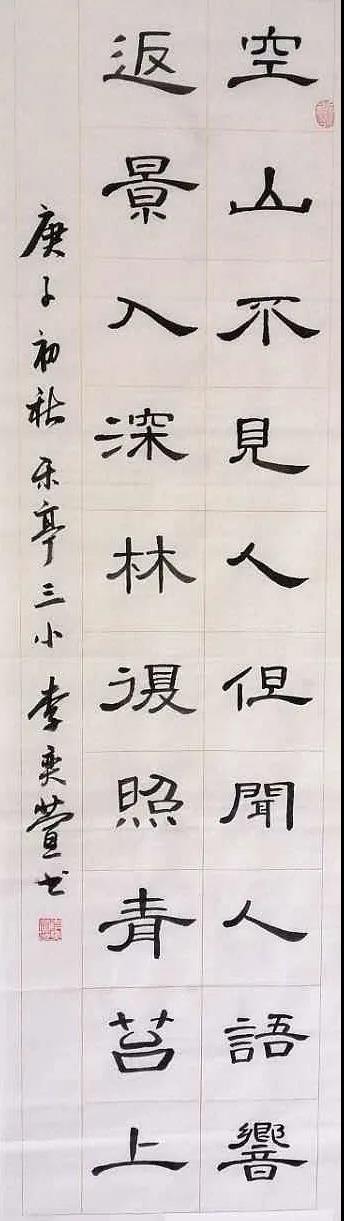 空山不見人但聞人語響
返景入深林復照青苔上
庚子初秋乐亭三小李奕萱书